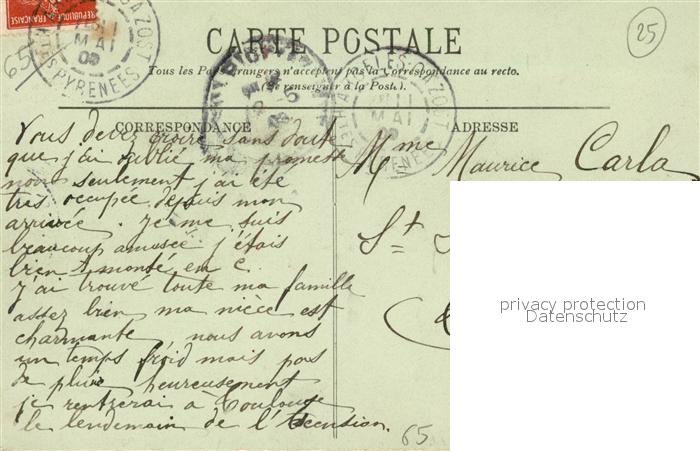 25
RÉPUBLIQUE FRANÇAISE
CARTE POSTALE
65
Tous les Pays étrangers n'acceptent pas la Correspondance au recto.
(Se renseigner à la Poste).
MAI
09
PYRENEES
CORRESPONDANCE
ADRESSE
Vous devez croire sans doute
que j'ai oublié ma promesse
non seulement j'ai été
très occupée depuis mon
arrivée. Je me suis
beaucoup amusée. j'étais
bien monté en c.
j'ai trouvé toute ma famille
assez bien ma nièce est
charmante, nous avons
un temps froid mais pas
de pluie heureusement
je rentrerai à Toulouse
le lendemain de l'Ascension.
Mme Maurice Carla
St
privacy protection
Datenschutz
65